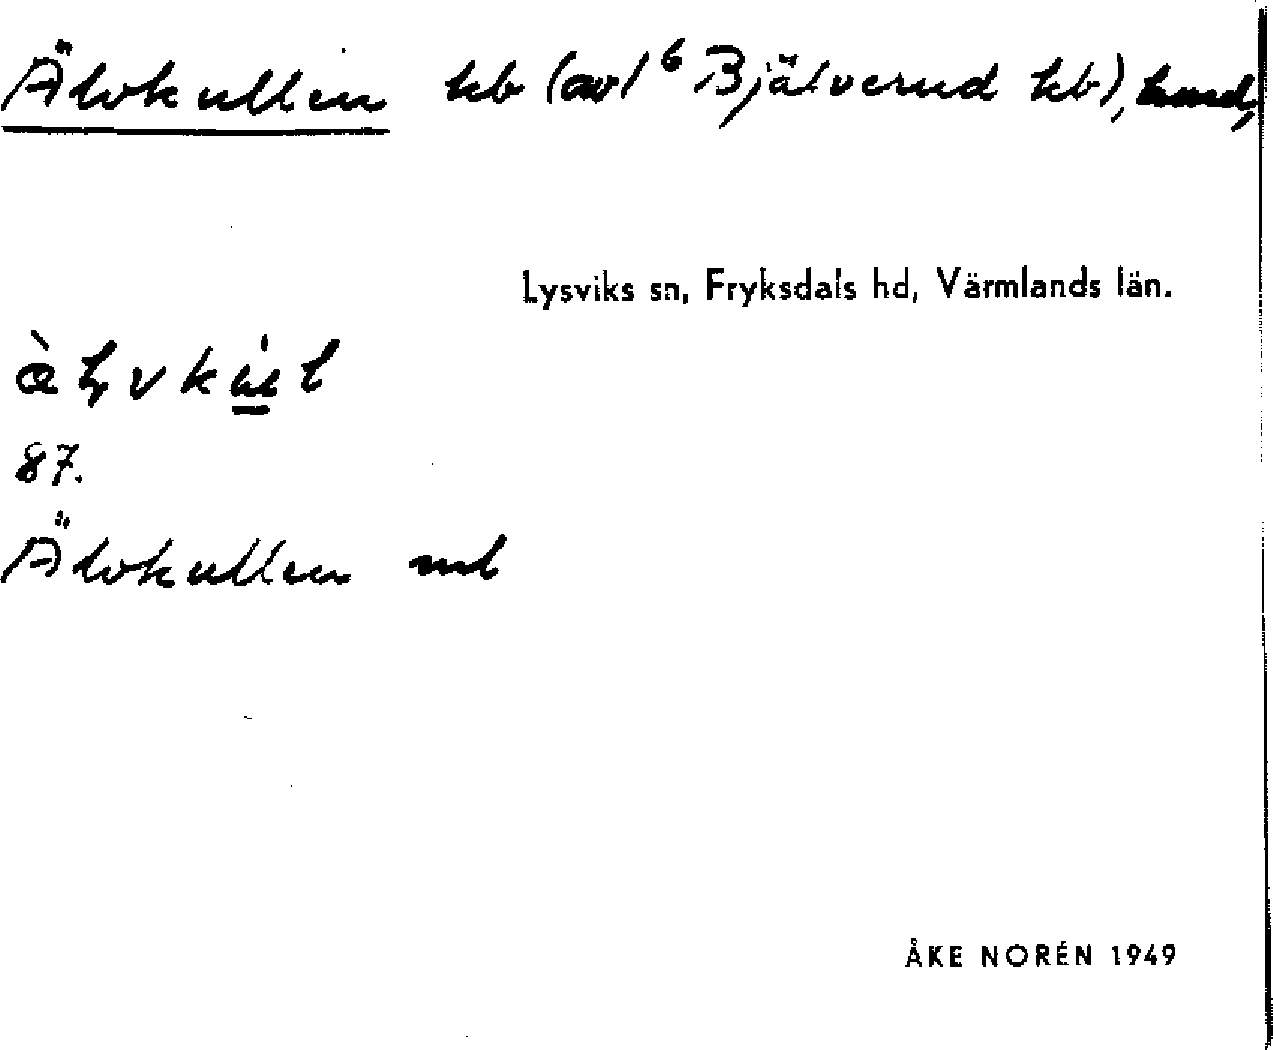 Älvkullen hb (avl⁶ Bjälverud hb),
Lysviks sn, Fryksdals hd, Värmlands län.
87.
Älvkullen ml
ÅKE NORÉN 1949